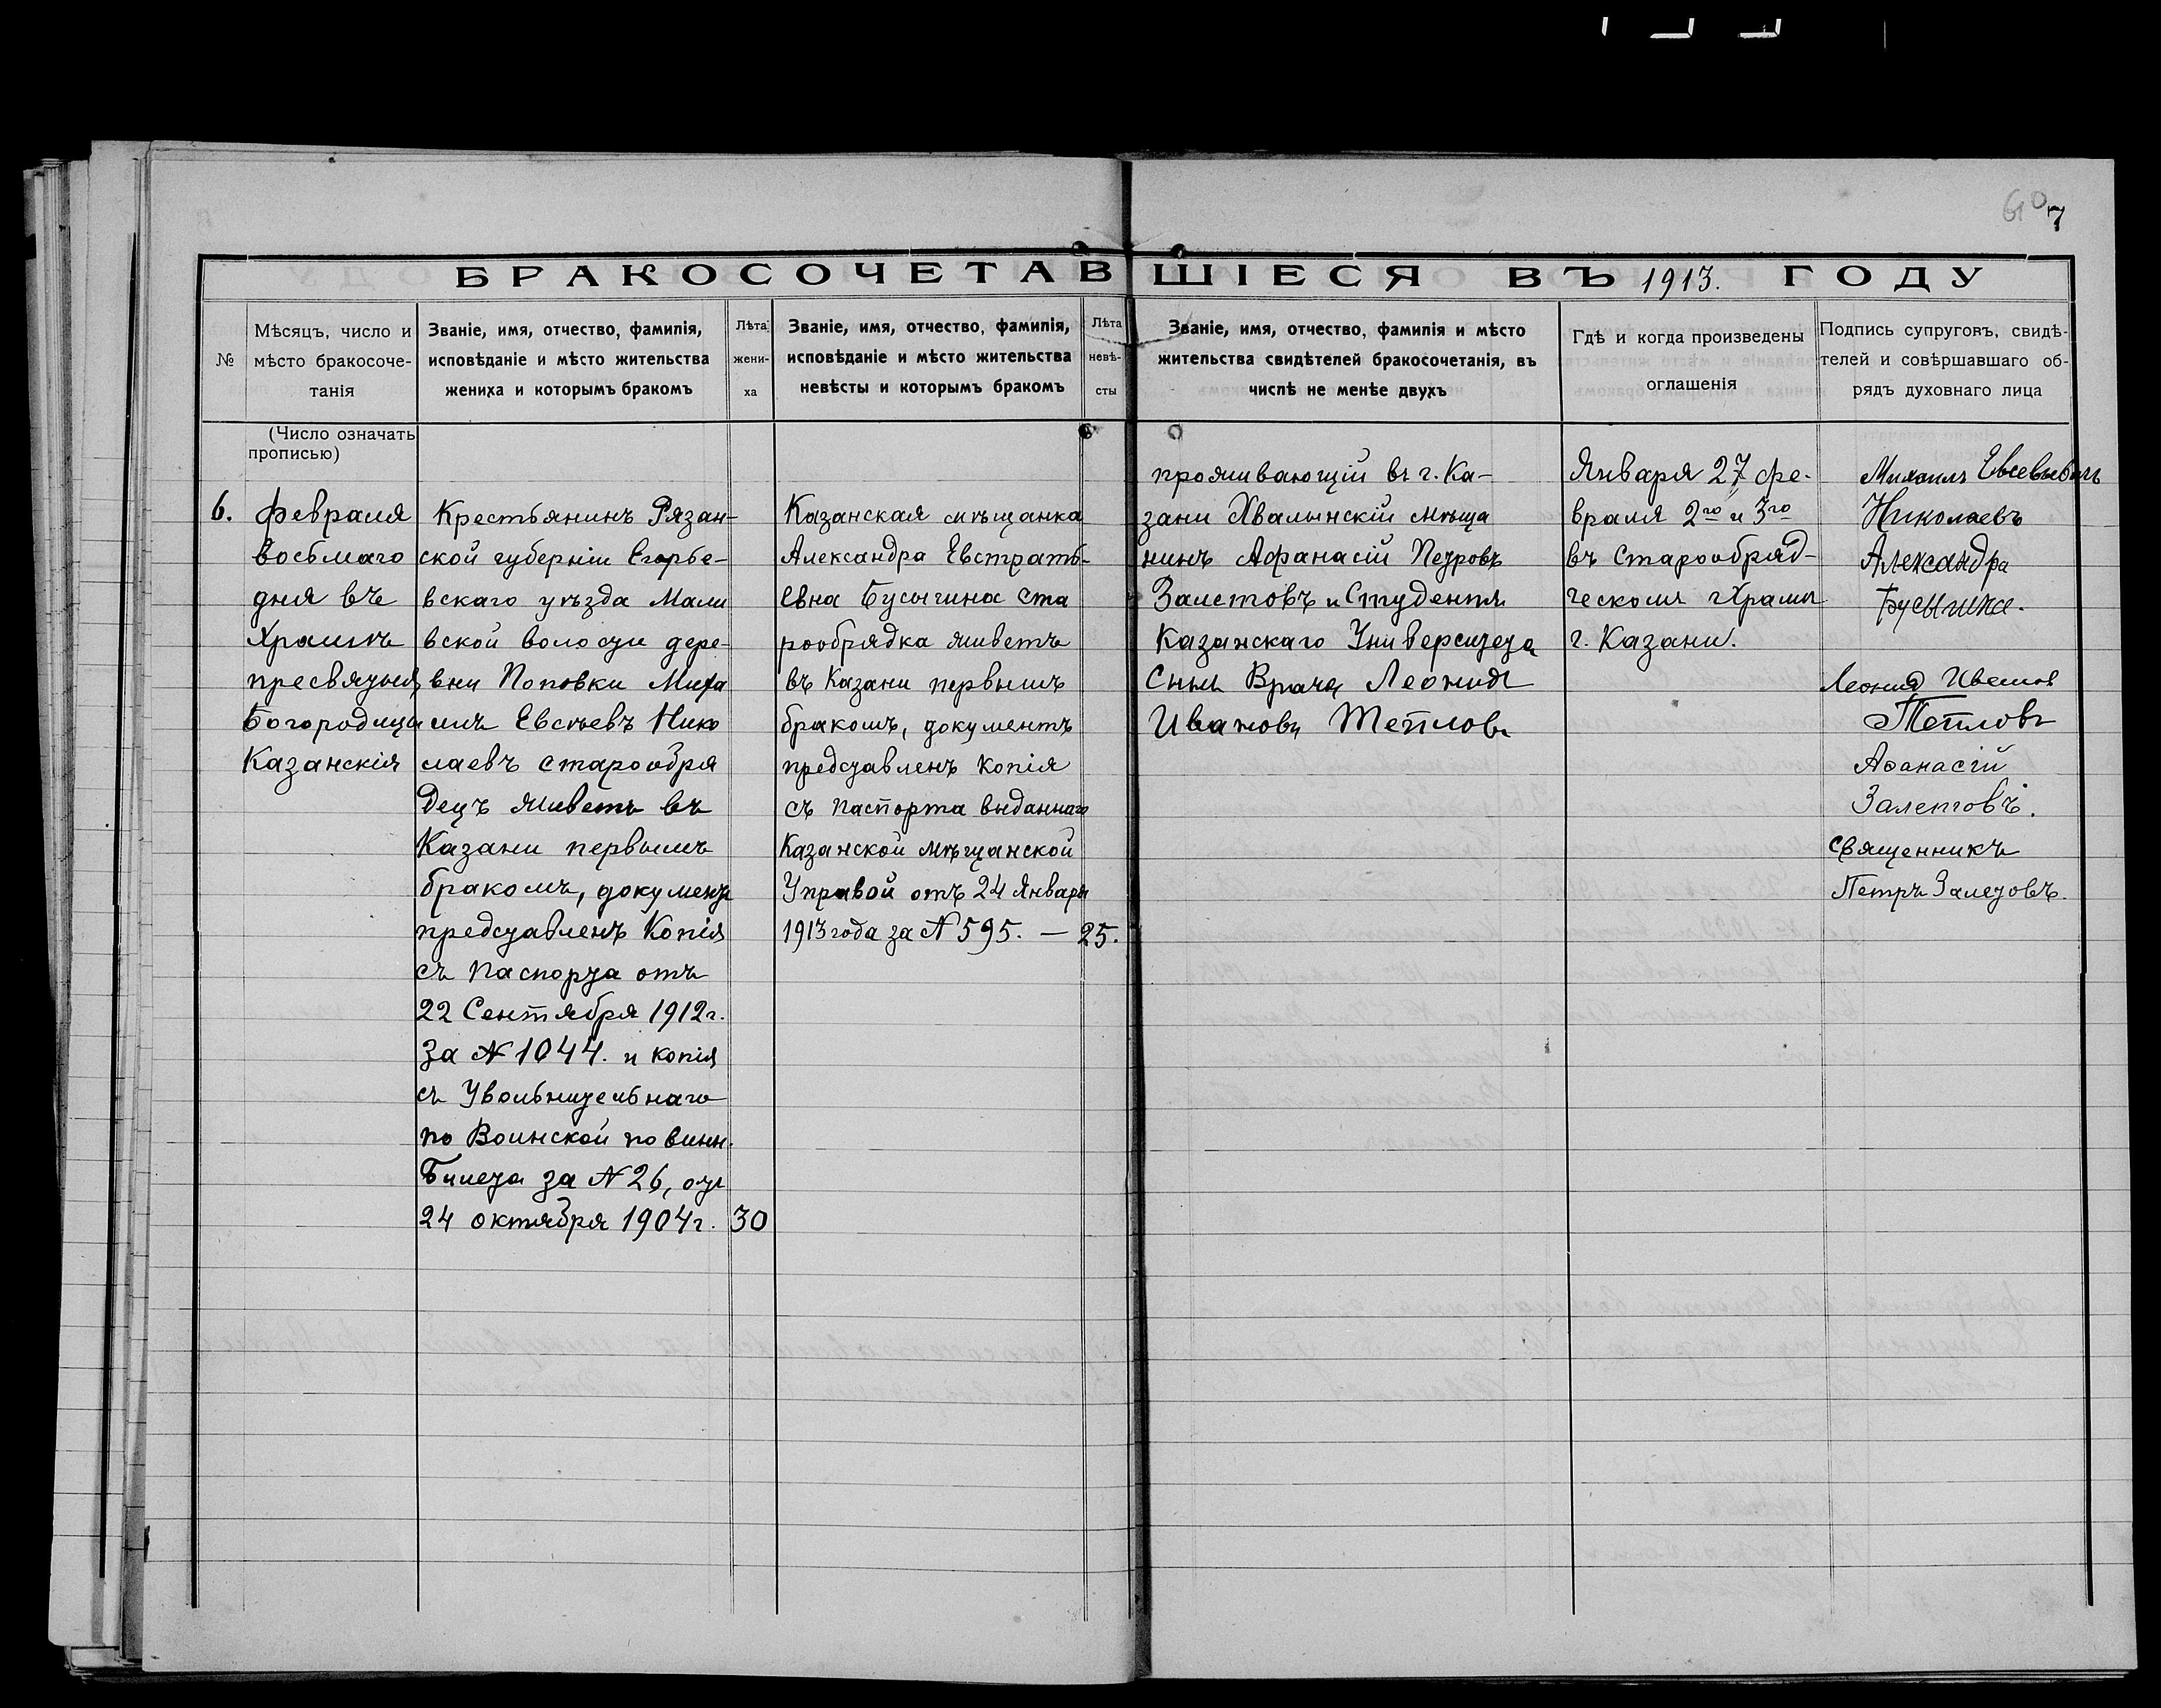 60 7
БРАКОСОЧЕТАВШІЕСЯ ВЪ 1913. ГОДУ
№
Мѣсяцъ, число и
мѣсто бракосоче-
танія
Званіе, имя, отчество, фамилія,
исповѣданіе и мѣсто жительства
жениха и которымъ бракомъ
Лѣта
жени-
ха
Званіе, имя, отчество, фамилія,
исповѣданіе и мѣсто жительства
невѣсты и которымъ бракомъ
Лѣта
невѣ-
сты
Званіе, имя, отчество, фамилія и мѣсто
жительства свидѣтелей бракосочетанія, въ
числѣ не менѣе двухъ
Гдѣ и когда произведены
оглашенія
Подпись супруговъ, свидѣ-
телей и совѣршавшаго об-
рядъ духовнаго лица
(Число означать
прописью)
6.
февраля
восьмаго
дня въ
Храмѣ
пресвятыя
Богородицы
Казанскія
Крестьянинъ Рязан-
ской губерніи Егорье-
вскаго уѣзда Мали
вской волости дере-
вни Поповки Миха
илъ Евсѣевъ Нико
лаевъ старообря
децъ живетъ въ
Казани первымъ
бракомъ, документъ
представленъ Копія
съ паспорта отъ
22 Сентября 1912 г.
за № 1044. и копія
съ Увольнительнаго
по Воинской повинн.
Билета за № 26, отъ
24 октября 1904 г.
30
Казанская мѣщанка
Александра Евстрать-
евна Бусыгина ста
рообрядка живетъ
въ Казани первымъ
бракомъ, документъ
представленъ копія
съ паспорта выданнаго
Казанской мѣщанской
Управой отъ 24 Января
1913 года за № 595. —
25.
проживающій въ г. Ка-
зани Хвалынскій мѣща
нинъ Афанасій Петровъ
Залетовъ и Студентъ
Казанскаго Университета
Сынъ Врача Леонидъ
Ивановъ Тепловъ
Января 27, фе-
враля 2го и 3го
въ старообряд-
ческомъ Храмѣ
г. Казани.
Михаилъ Евсевьевичъ
Николаевъ
Александра
Бусыгина.
Леонид Иванов
Тепловъ
Аѳанасій
Залетовъ.
священникъ
Петръ Залетовъ.